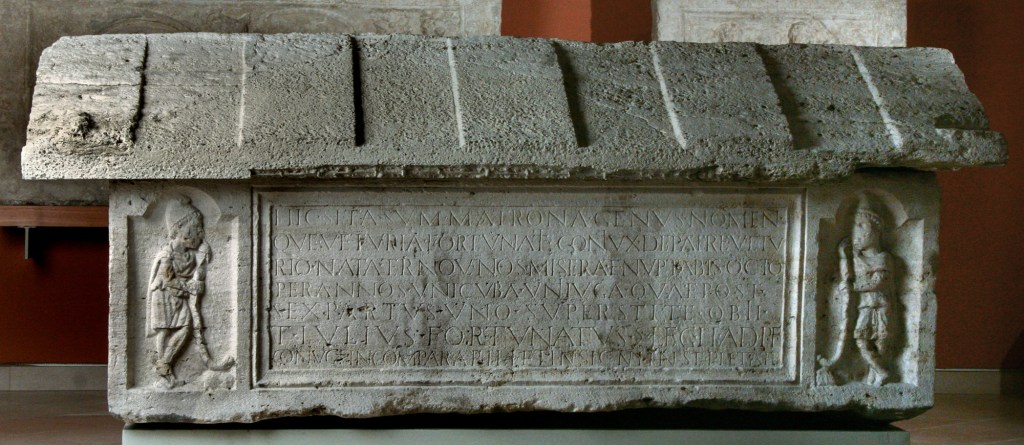 HIC SITA SVM MATRONA GENVS NOMEN
QVE VETVRIA FORTVNATI CONIVX DE PATRE VETV
RIO NATA TER NOVENOS MISERA ET NVPTA BIS OCTO
PER ANNOS VNICVBA VNIIVGA QVAE POST
SEX PARTVS VNO SVPERSTITE OBII
T IVLIVS FORTVNATVS LEG II AD P F
CONIVGI INCOMPARABILI ET INSIGNI IN SE PIETATE